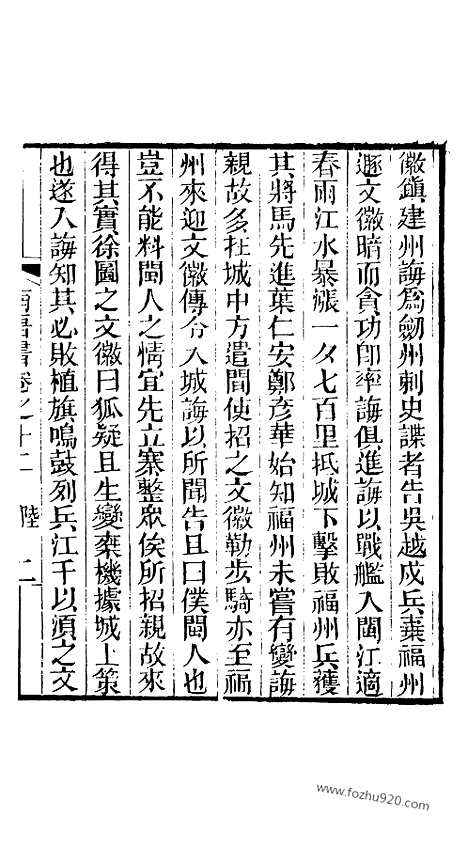 徽鎮建州誨爲劒州刺史諜者告吳越戍兵棄福州
遯文徽暗而貪功卽率誨俱進誨以戰艦入閩江適
春雨江水暴漲一夕七百里抵城下擊敗福州兵獲
其將馬先進葉仁安鄭彥華始知福州未嘗有變誨
親故多在城中方遣間使招之文徽勒步騎亦至福
州來迎文徽傳令入城誨以所聞告且曰僕閩人也
豈不能料閩人之情宜先立寨整眾俟所招親故來
得其實徐圖之文徽曰狐疑且生變乘機據城上策
也遂入誨知其必敗植旗鳴鼓列兵江干以須之文
南唐書卷之十二 陸 二
www.fozhu920.com